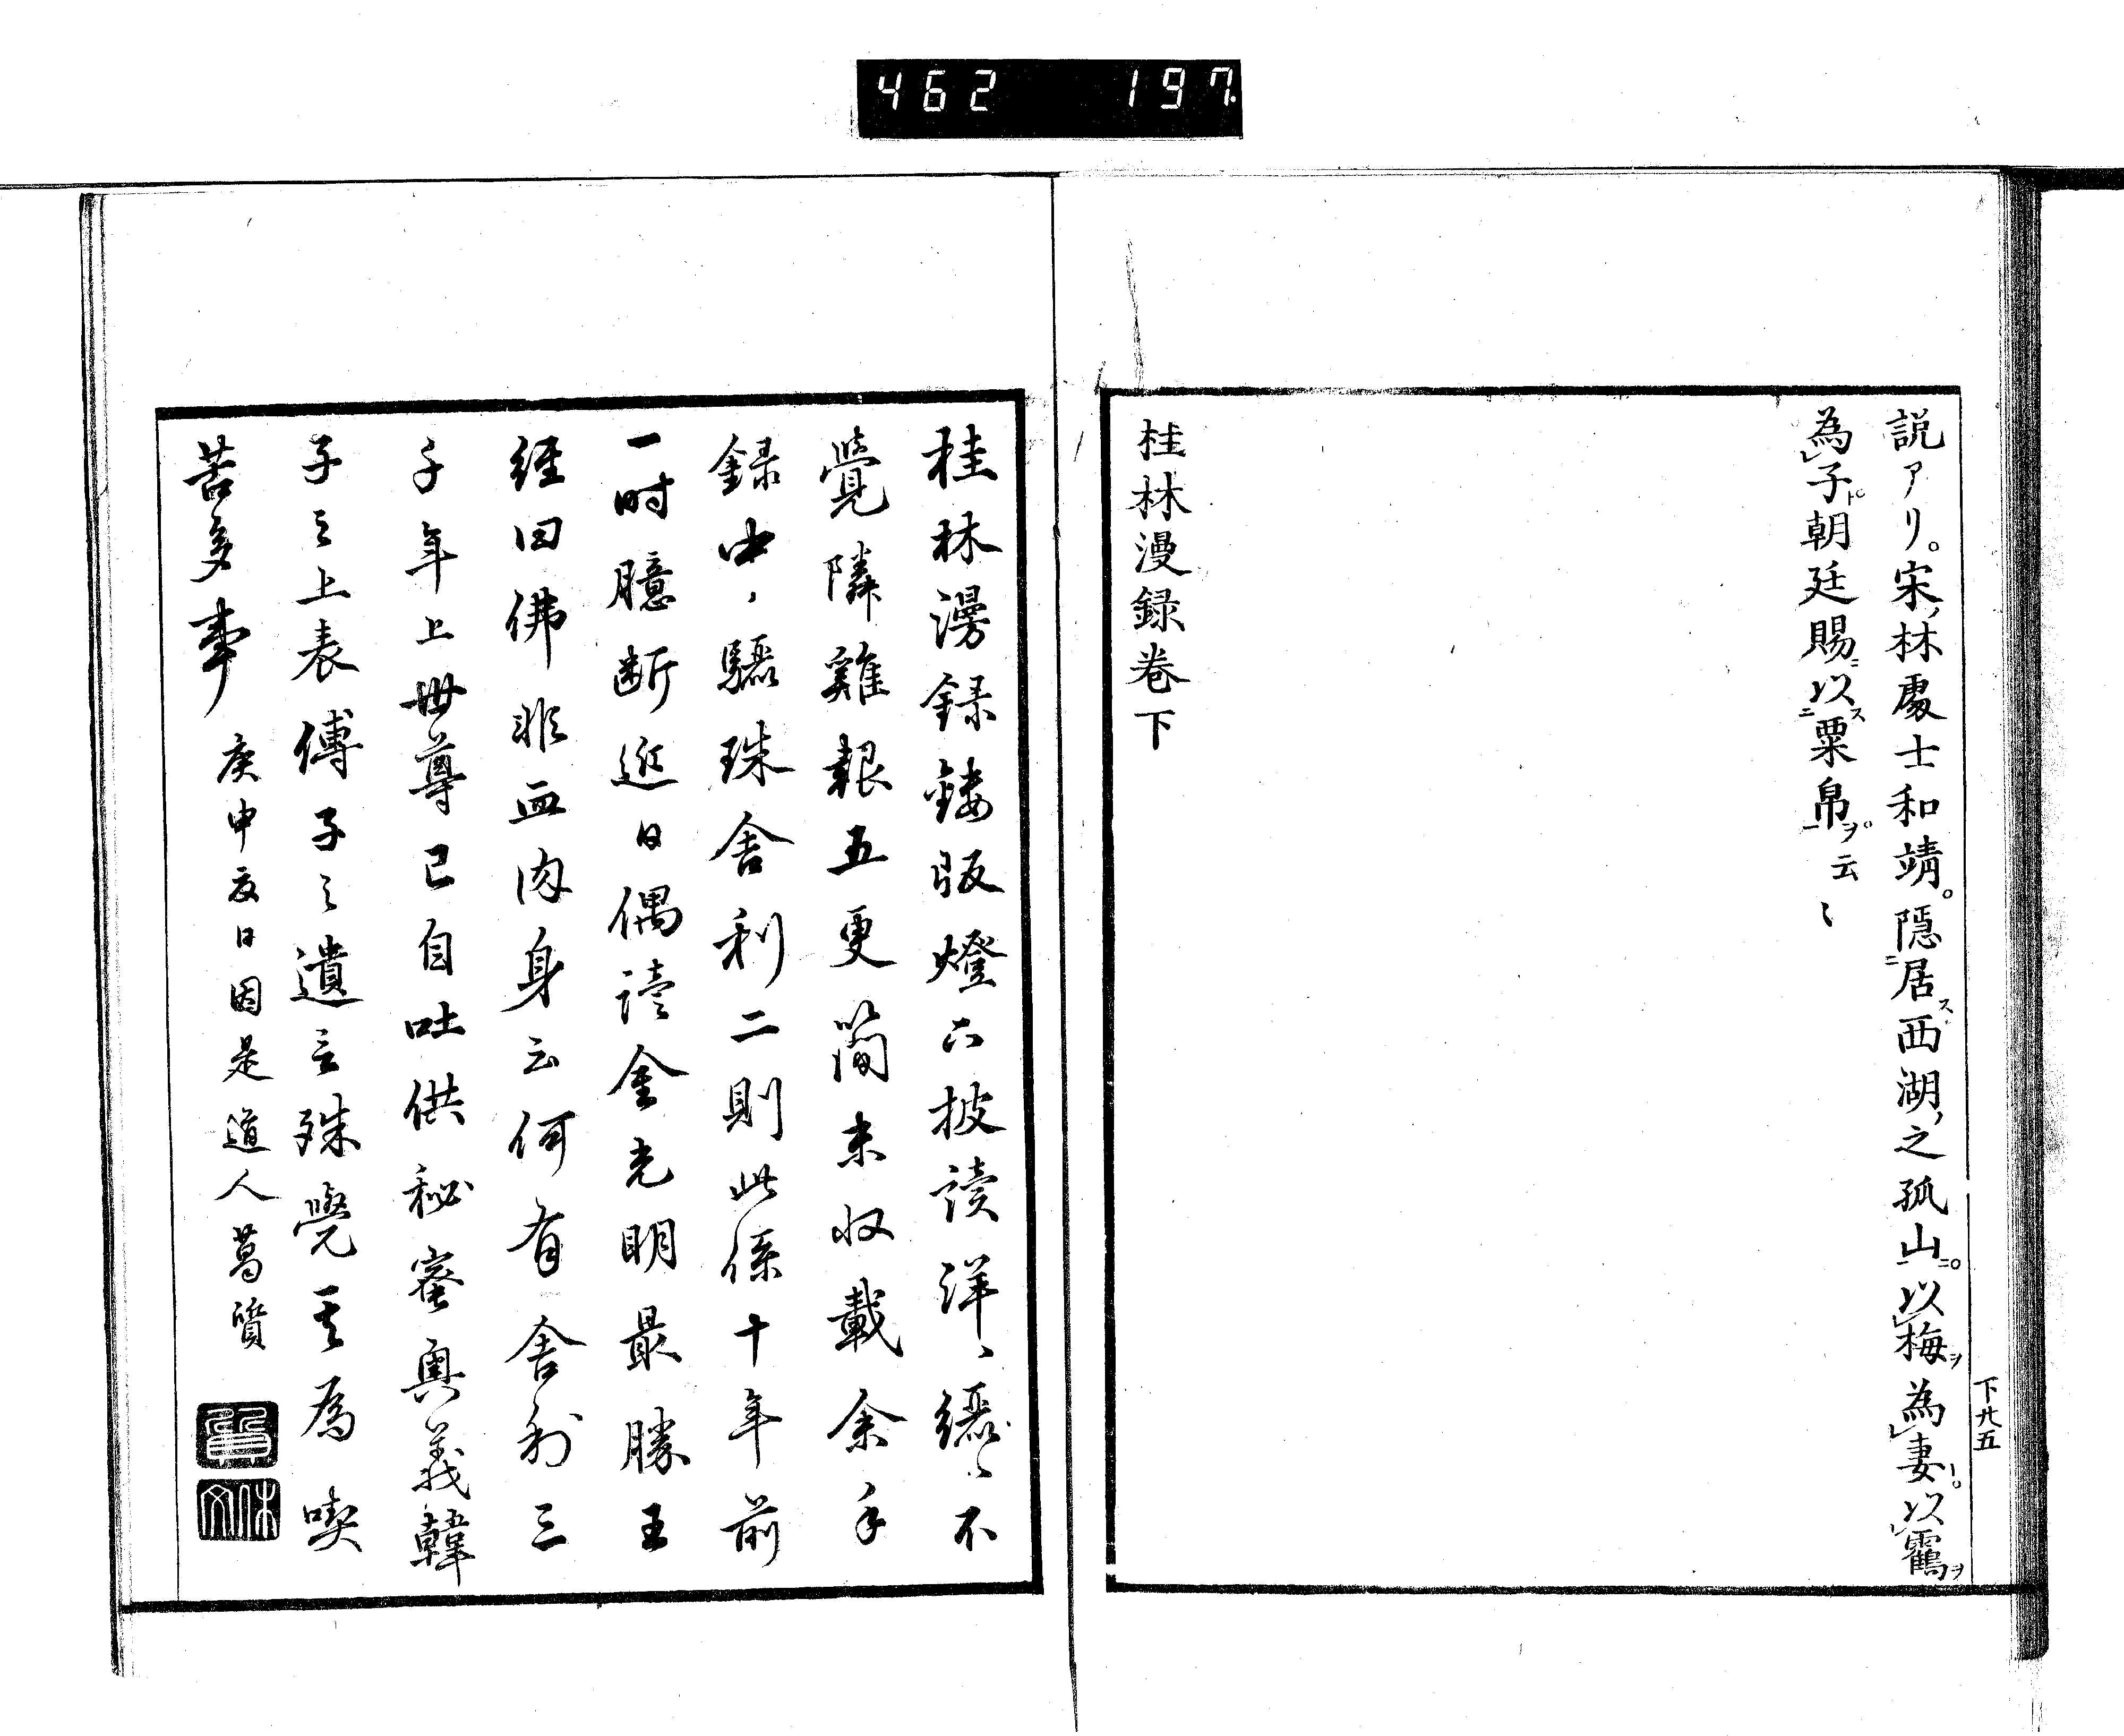 462 197
説アリ。宋ノ林處士和靖。隱‐居ス西湖ノ之孤山ニ。以梅ヲ為妻ト。以靍ヲ
為子ト。朝廷賜ニ以ス粟帛ヲ。云〻
桂林漫録卷下
下廿五
桂林漫録鏤版燈下披讀洋〻纚〻不
覺隣雞報五更簡末收載余手
録中〻驪珠舎利二則此係十年前
一時臆断近日偶讀金光明最勝王
經曰佛非血肉身云何有舎利三
千年上世尊已自吐供秘密奥義韓
子之上表傅子之遺言殊覺其為喫
苦多事
庚申夏日因是道人葛質
休文